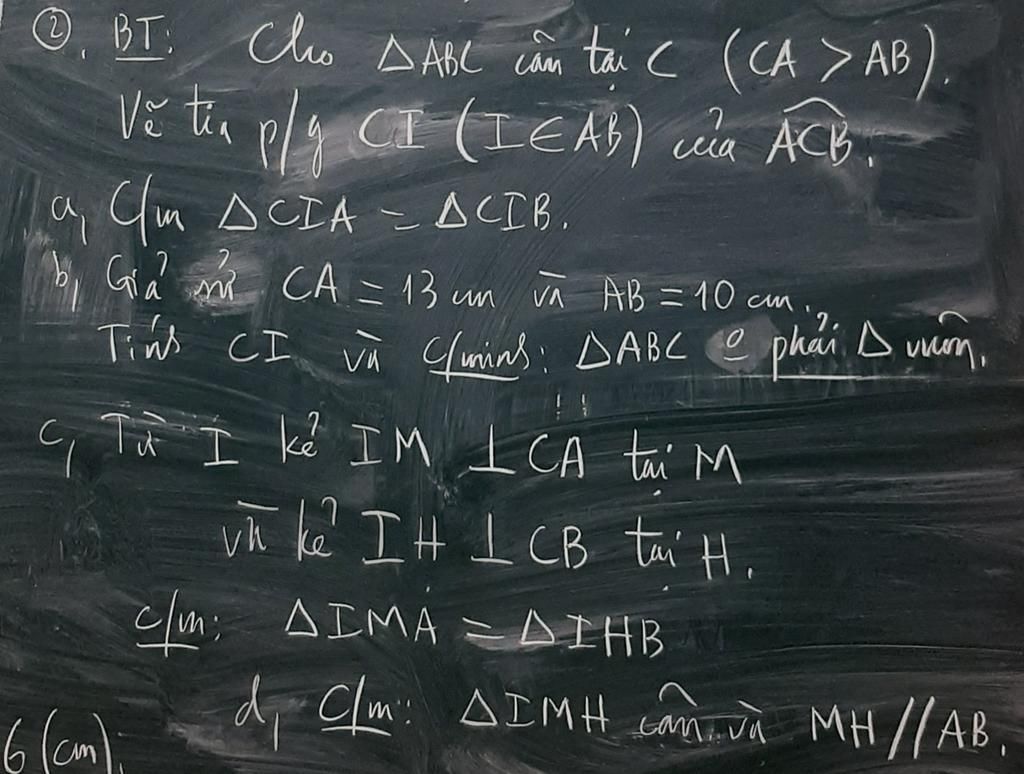 ②. BT: Cho ΔABC cân tại C (CA > AB).
Vẽ tia p/g CI (I ∈ AB) của ACB.
a, C/m ΔCIA = ΔCIB.
b, Giả sử CA = 13 cm và AB = 10 cm.
Tính CI và c/minh: ΔABC o phải Δ vuông.
c, Từ I kẻ IM ⊥ CA tại M
và kẻ IH ⊥ CB tại H.
c/m: ΔIMA = ΔIHB
d, C/m: ΔIMH cân và MH // AB.
6 (cm).